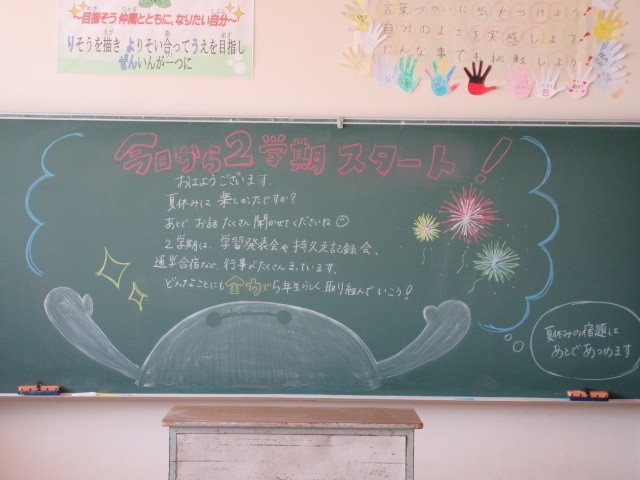 ～目指そう 仲間とともに、なりたい自分～
りそうを描き よりそい合って うえを目指し
ぜんいんが一つに
言葉づかいに気をつけよう!
自分のよさを実感しよう!
どんな事でも挑戦しよう!
今日から2学期 スタート!
おはようございます。
夏休みは 楽しかったですか?
あとで お話 たくさん 聞かせてくださいね
2学期は、学習発表会や 持久走記録会、
通学合宿など、行事がたくさんまっています。
どんなことにも全力で5年生らしく 取り組んでいこう!
夏休みの宿題は
あとであつめます